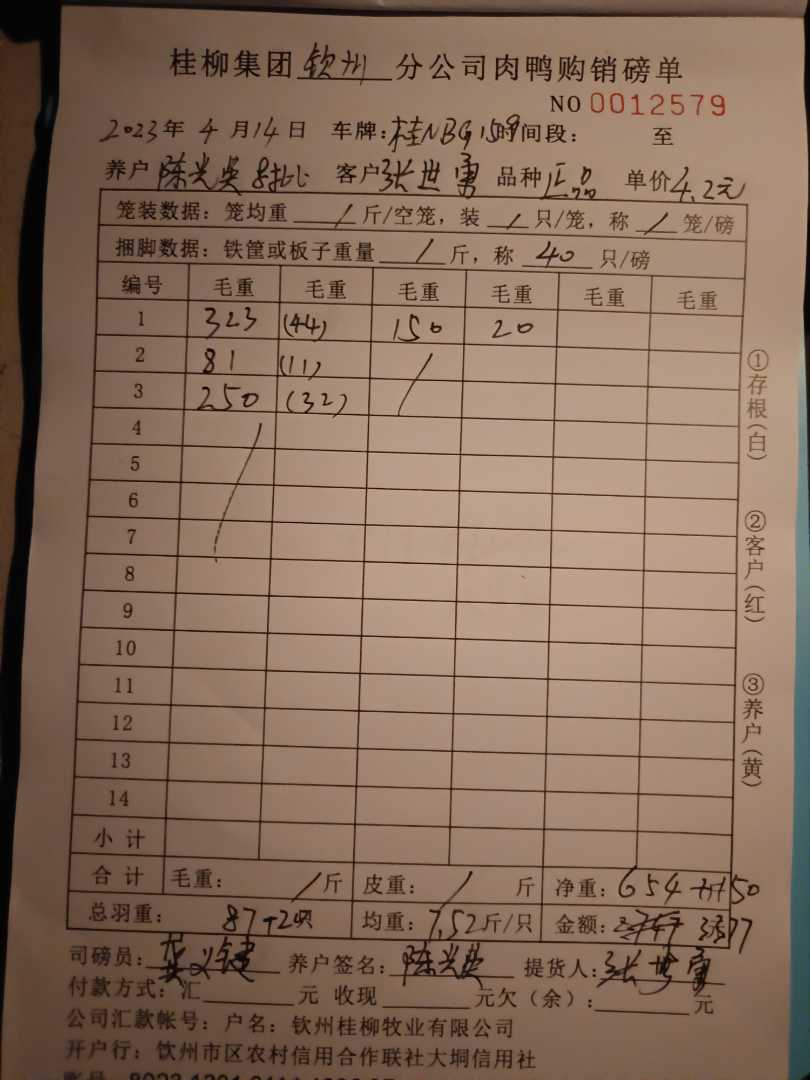 桂柳集团钦州分公司肉鸭购销磅单
NO 0012579
2023年4月14日 车牌:桂NBG159 时间段: 至
养户 陈光英 8批 客户 张世勇 品种 正品 单价 4.2元
笼装数据:笼均重 / 斤/空笼,装 / 只/笼,称 / 笼/磅
捆脚数据:铁筐或板子重量 / 斤,称 40 只/磅
编号 毛重 毛重 毛重 毛重 毛重 毛重
1 323 (44) 150 20
2 81 (11) /
3 250 (32)
4 /
5
6
7
8
9
10
11
12
13
14
小计
合计 毛重: / 斤 皮重: / 斤 净重: 654 150
总羽重: 87+20只 均重: 7.52斤/只 金额: 3577
司磅员: 义键 养户签名: 陈光英 提货人: 张世勇
付款方式:汇 元 收现 元欠(余): 元
公司汇款帐号:户名:钦州桂柳牧业有限公司
开户行:钦州市区农村信用合作联社大垌信用社
①存根(白)
②客户(红)
③养户(黄)